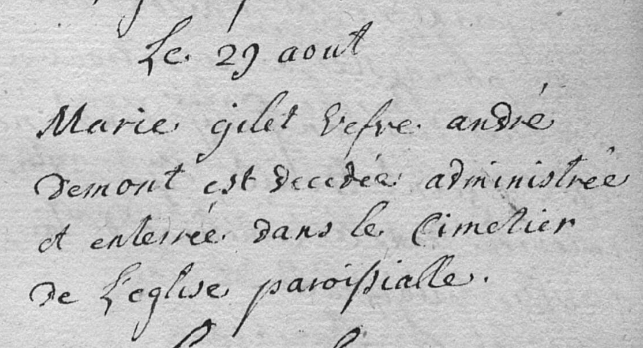 Le 29 aout
Marie gilet vefve andré
Demont est decedée administrée
et enterrée dans le Cimetier
de L'eglise paroissialle.